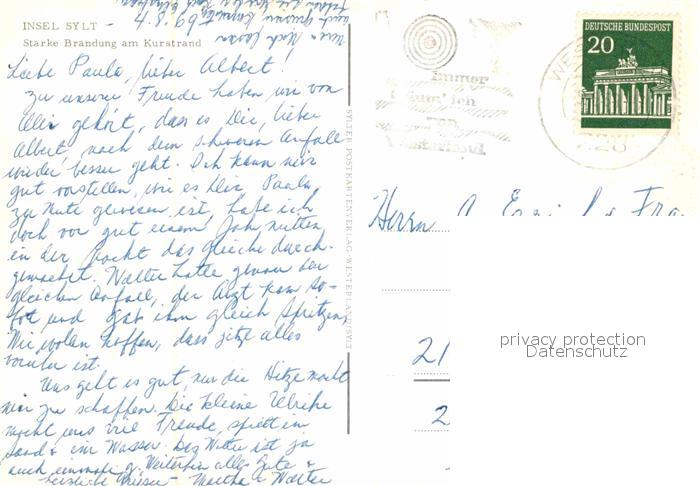 INSEL SYLT - 4.8.69
Starke Brandung am Kurstrand
Liebe Paula, lieber Albert!
Zu unserer Freude haben wir von
gehört, dass es Dir, lieber
Albert, nach dem schweren Anfall
wieder besser geht. Ich kann mir
gut vorstellen, wie es Dir, Paula,
zu Mute gewesen ist, habe ich
doch vor gut einem Jahr mitten
in der Nacht das gleiche durch-
gemacht. Walter hatte genau den
gleichen Anfall, der Arzt kam so-
fort und gab ihm gleich Spritzen.
Wir wollen hoffen, dass jetzt alles
vorüber ist.
Uns geht es gut, nur die Hitze macht
mir zu schaffen. Die kleine Ulrike
macht uns viel Freude, spielt im
Sand & im Wasser. Das Wetter ist ja
auch einmalig. Weiterhin alles Gute &
herzliche Grüsse - Martha & Walter
SYLTER POSTKARTENVERLAG · WESTERLAND/SYLT
DEUTSCHE BUNDESPOST
20
Immer
ich
von
Westerland
WES
228
Herrn
21
2
privacy protection
Datenschutz